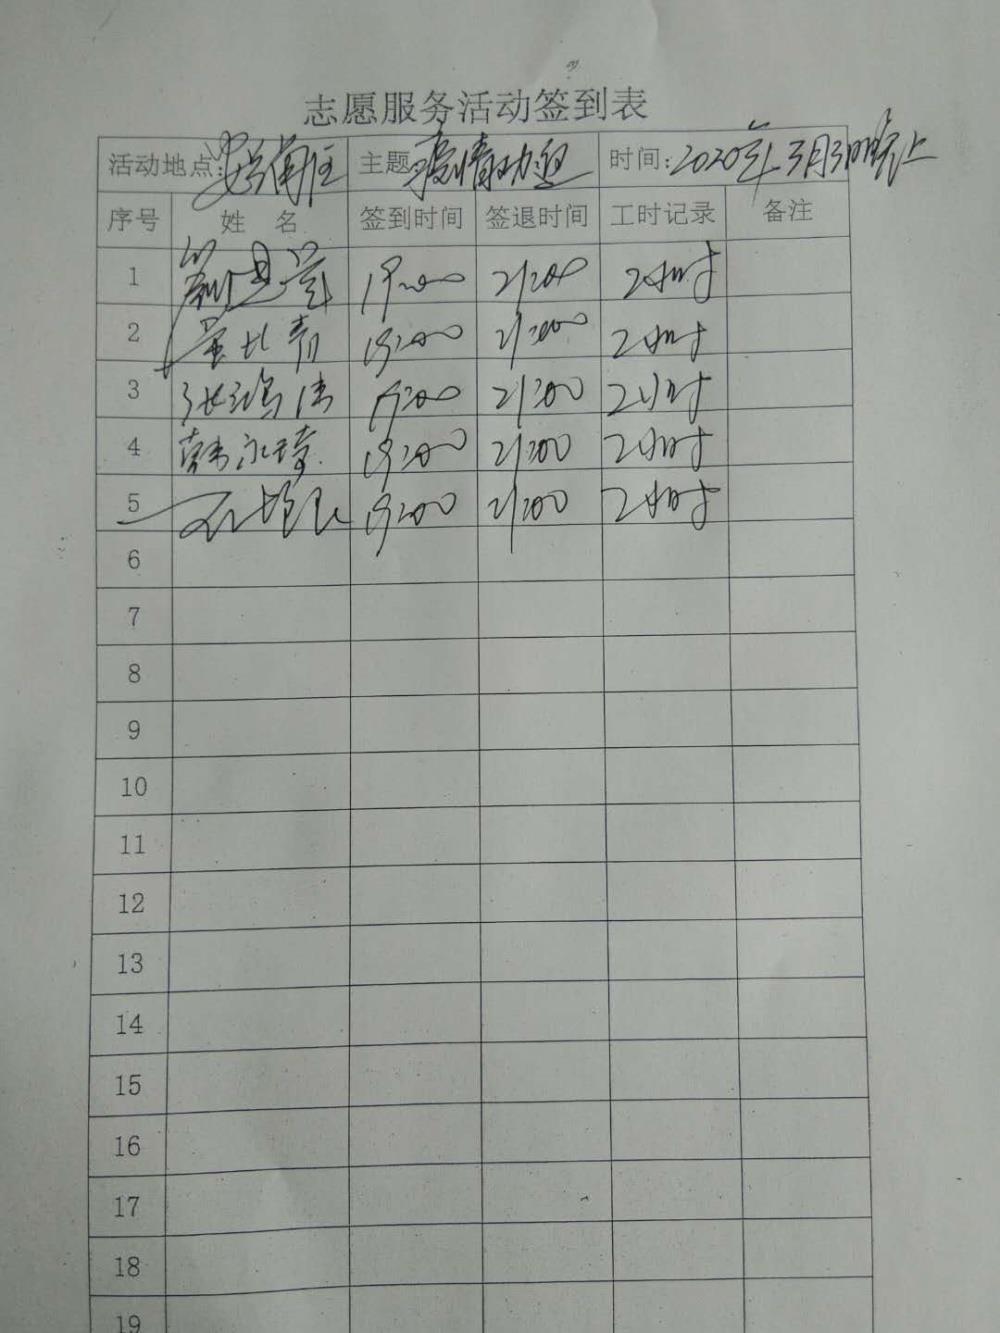 志愿服务活动签到表
活动地点: 主题 疫情 时间: 2020年3月3日晚上
序号 姓 名 签到时间 签退时间 工时记录 备注
1 19:00 21:00 2小时
2 19:00 21:00 2小时
3 张鸿伟 19:00 21:00 2小时
4 韩永琦 19:00 21:00 2小时
5 19:00 21:00 2小时
6
7
8
9
10
11
12
13
14
15
16
17
18
19